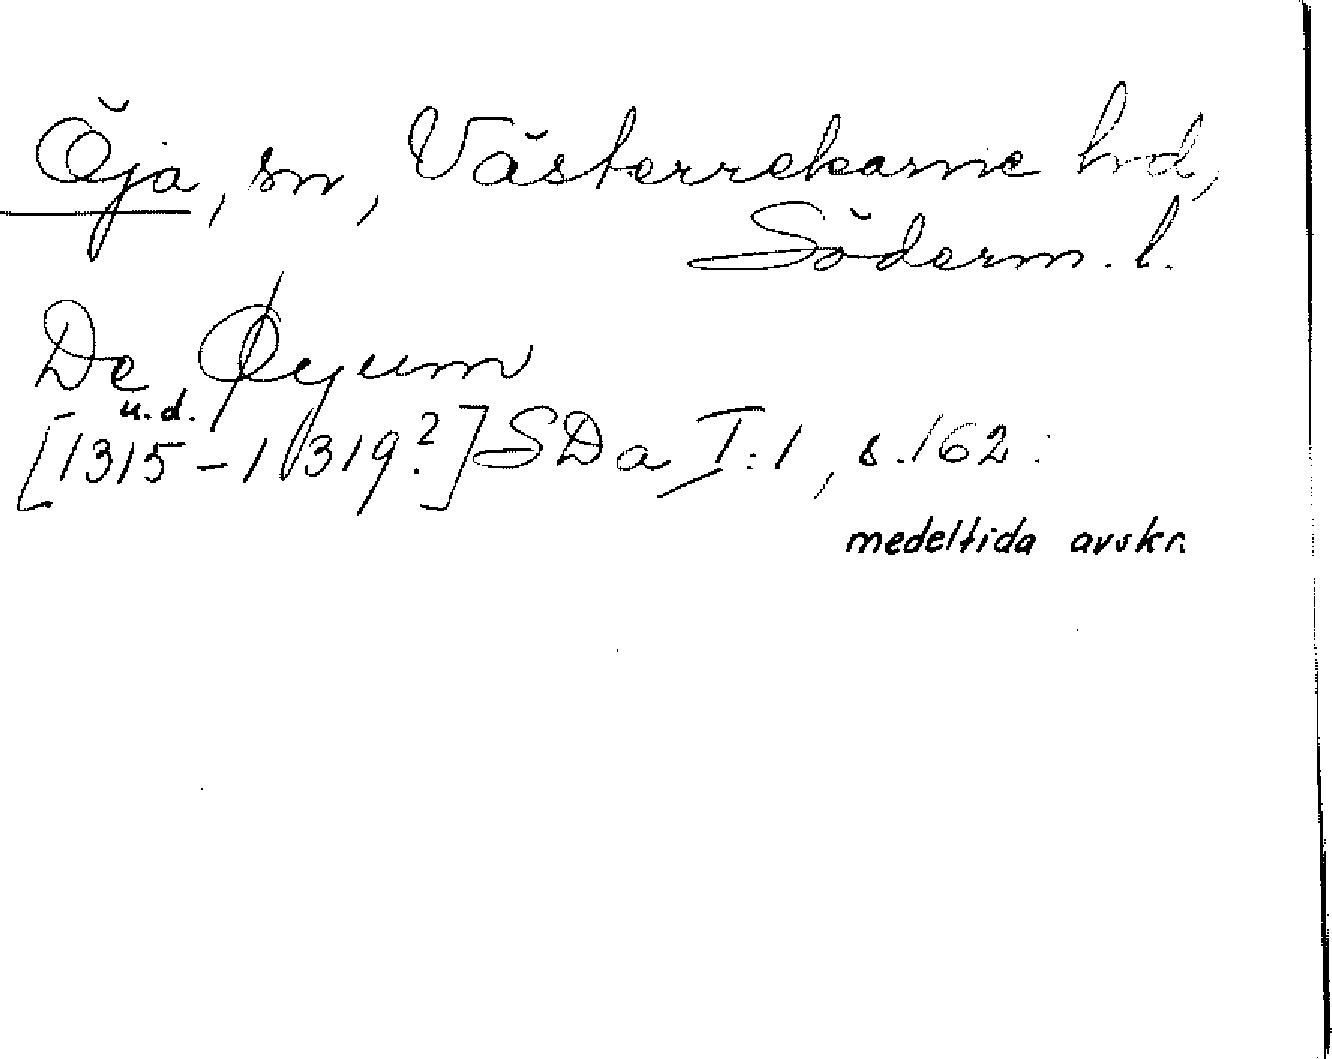 Öja, sn, Västerrekarne hd,
Söderm. l.
De Øyum
u.d.
[1315-1319?] SDa I:1, s. 162:
medeltida avskr.